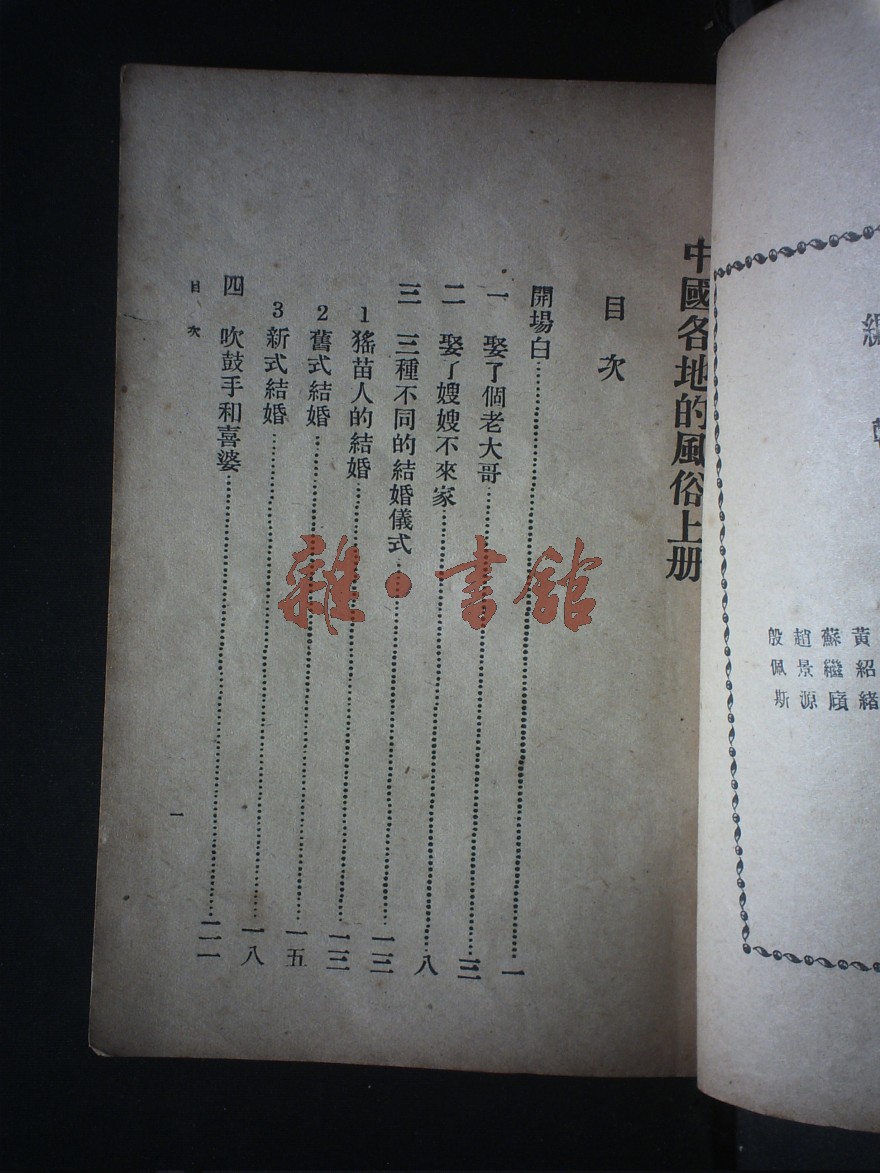 中國各地的風俗上册
目次
開場白……一
一 娶了個老大哥……三
二 娶了嫂嫂不來家……八
三 三種不同的結婚儀式……一三
1 猺苗人的結婚……一三
2 舊式結婚……一五
3 新式結婚……一八
四 吹鼓手和喜婆……二一
目次
一
黃紹緒
蘇繼廎
趙景源
殷佩斯
雜·書館